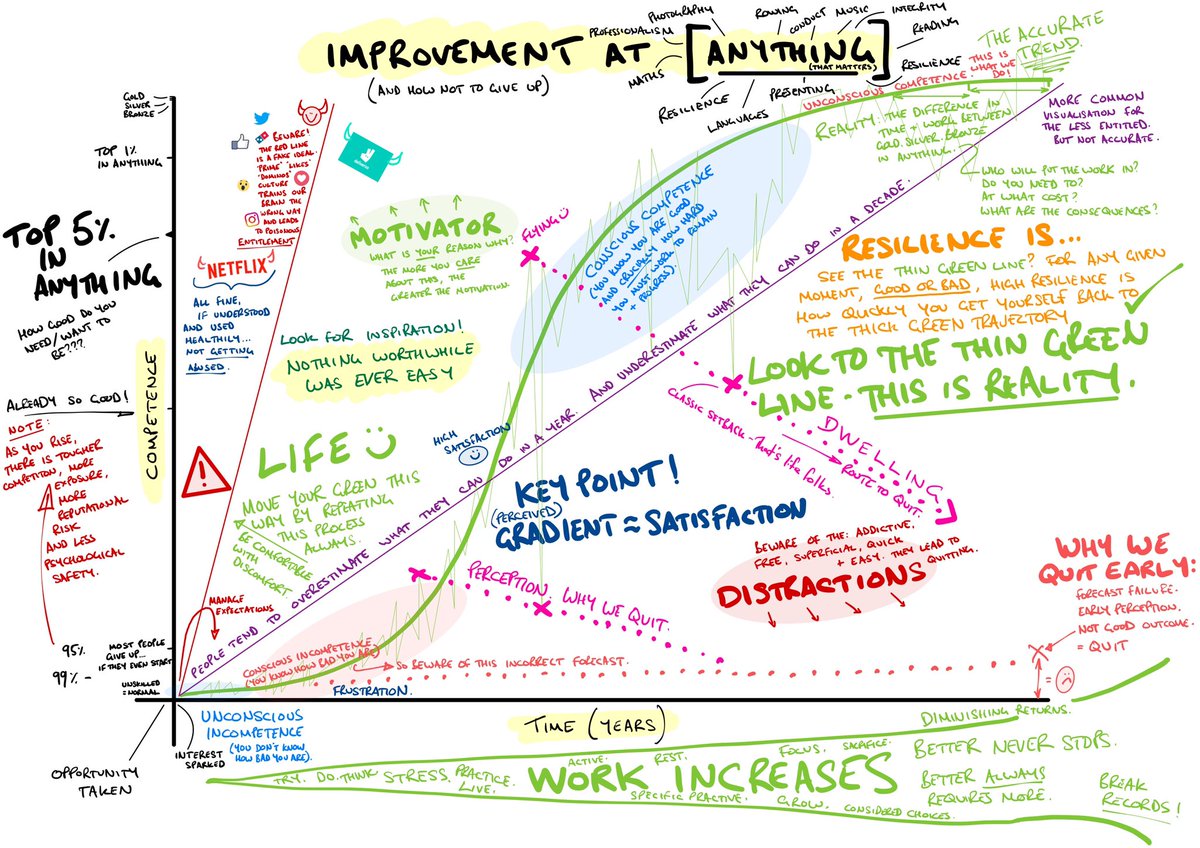 IMPROVEMENT AT [ANYTHING]
(THAT MATTERS)
(AND HOW NOT TO GIVE UP)
PROFESSIONALISM
PHOTOGRAPHY
ROWING
CONDUCT
MUSIC
INTEGRITY
READING
RESILIENCE
PRESENTING
LANGUAGES
RESILIENCE
MATHS
THE ACCURATE
TREND.
UNCONSCIOUS COMPETENCE.
THIS IS
WHAT WE
DO!
REALITY: THE DIFFERENCE IN
TIME + WORK BETWEEN
GOLD. SILVER. BRONZE
IN ANYTHING.
MORE COMMON
VISUALISATION FOR
THE LESS ENTITLED.
BUT NOT ACCURATE.
WHO WILL PUT THE WORK IN?
DO YOU NEED TO?
AT WHAT COST?
WHAT ARE THE CONSEQUENCES?
GOLD
SILVER
BRONZE
TOP 1%
IN ANYTHING
TOP 5%
IN
ANYTHING
HOW GOOD DO YOU
NEED/WANT TO
BE???
COMPETENCE
ALREADY SO GOOD!
NOTE:
AS YOU RISE,
THERE IS TOUGHER
COMPETITON, MORE
EXPOSURE,
MORE
REPUTATIONAL
RISK
AND LESS
PSYCHOLOGICAL
SAFETY.
95%
MOST PEOPLE
GIVE UP...
IF THEY EVEN START
99% -
UNSKILLED
=NORMAL
BEWARE!
THE RED LINE
IS A FAKE IDEAL.
'PRIME' 'LIKES'
'DOMINOS'
CULTURE
TRAINS OUR
BRAIN THE
WRONG WAY
AND LEADS
TO POISONOUS
ENTITLEMENT
deliveroo
NETFLIX
ALL FINE,
IF UNDERSTOOD
AND USED
HEALTHILY...
NOT GETTING
ABUSED.
MOTIVATOR
WHAT IS YOUR REASON WHY?
THE MORE YOU CARE
ABOUT THIS, THE
GREATER THE MOTIVATION.
LOOK FOR INSPIRATION!
NOTHING WORTHWHILE
WAS EVER EASY
FLYING
CONSCIOUS COMPETENCE
(YOU KNOW YOU ARE GOOD
AND CRUCIALLY HOW HARD
YOU MUST WORK TO REMAIN
+ PROGRESS).
RESILIENCE IS...
SEE THE THIN GREEN LINE? FOR ANY GIVEN
MOMENT, GOOD OR BAD, HIGH RESILIENCE IS
HOW QUICKLY YOU GET YOURSELF BACK TO
THE THICK GREEN TRAJECTORY
LOOK TO THE THIN GREEN
LINE - THIS IS REALITY.
LIFE
MOVE YOUR GREEN THIS
WAY BY REPEATING
THIS PROCESS
ALWAYS.
BE COMFORTABLE
WITH
DISCOMFORT
HIGH
SATISFACTION
PEOPLE TEND TO OVERESTIMATE WHAT THEY CAN DO IN A YEAR. AND UNDERESTIMATE WHAT THEY CAN DO IN A DECADE.
KEY POINT!
(PERCEIVED)
GRADIENT ≈ SATISFACTION
CLASSIC SETBACK - THAT'S LIFE FOLKS.
DWELLING
ROUTE TO QUIT.
BEWARE OF THE: ADDICTIVE,
FREE, SUPERFICIAL, QUICK
+ EASY. THEY LEAD TO
QUITTING.
DISTRACTIONS
PERCEPTION. WHY WE QUIT.
WHY WE
QUIT EARLY:
FORECAST FAILURE.
EARLY PERCEPTION.
NOT GOOD OUTCOME.
= QUIT
=
MANAGE
EXPECTATIONS
CONSCIOUS INCOMPETENCE
(YOU KNOW HOW BAD YOU ARE)
SO BEWARE OF THIS INCORRECT FORECAST.
FRUSTRATION.
UNCONSCIOUS
INCOMPETENCE
(YOU DON'T KNOW
HOW BAD YOU ARE).
INTEREST
SPARKED
OPPORTUNITY
TAKEN
TIME (YEARS)
DIMINISHING RETURNS.
TRY. DO. THINK STRESS. PRACTICE.
LIVE,
ACTIVE. REST.
FOCUS. SACRIFICE.
WORK INCREASES
SPECIFIC PRACTIVE. GROW, CONSIDERED CHOICES.
BETTER NEVER STOPS.
BETTER ALWAYS
REQUIRES MORE.
BREAK
RECORDS!